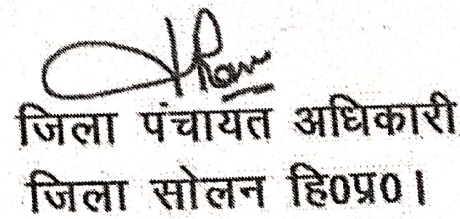 जिला पंचायत अधिकारी
जिला सोलन हि0प्र0।